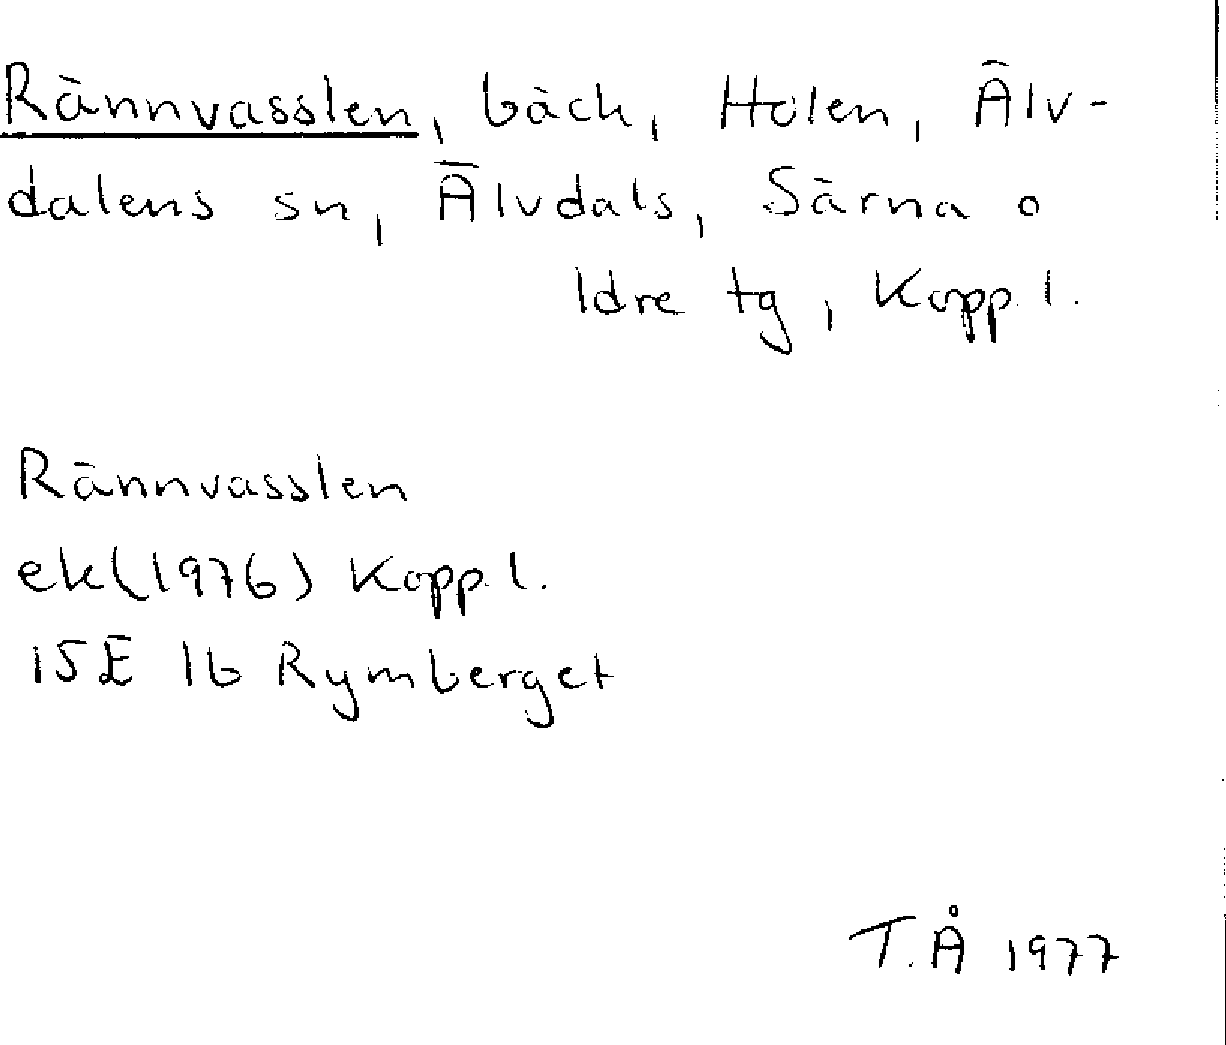 Rännvasslen, bäck, Holen, Älv-
dalens sn, Älvdals, Särna o
Idre tg, Kopp. l.
Rännvasslen
ek(1976) Kopp. l.
15E 1b Rymberget
T.Å 1977